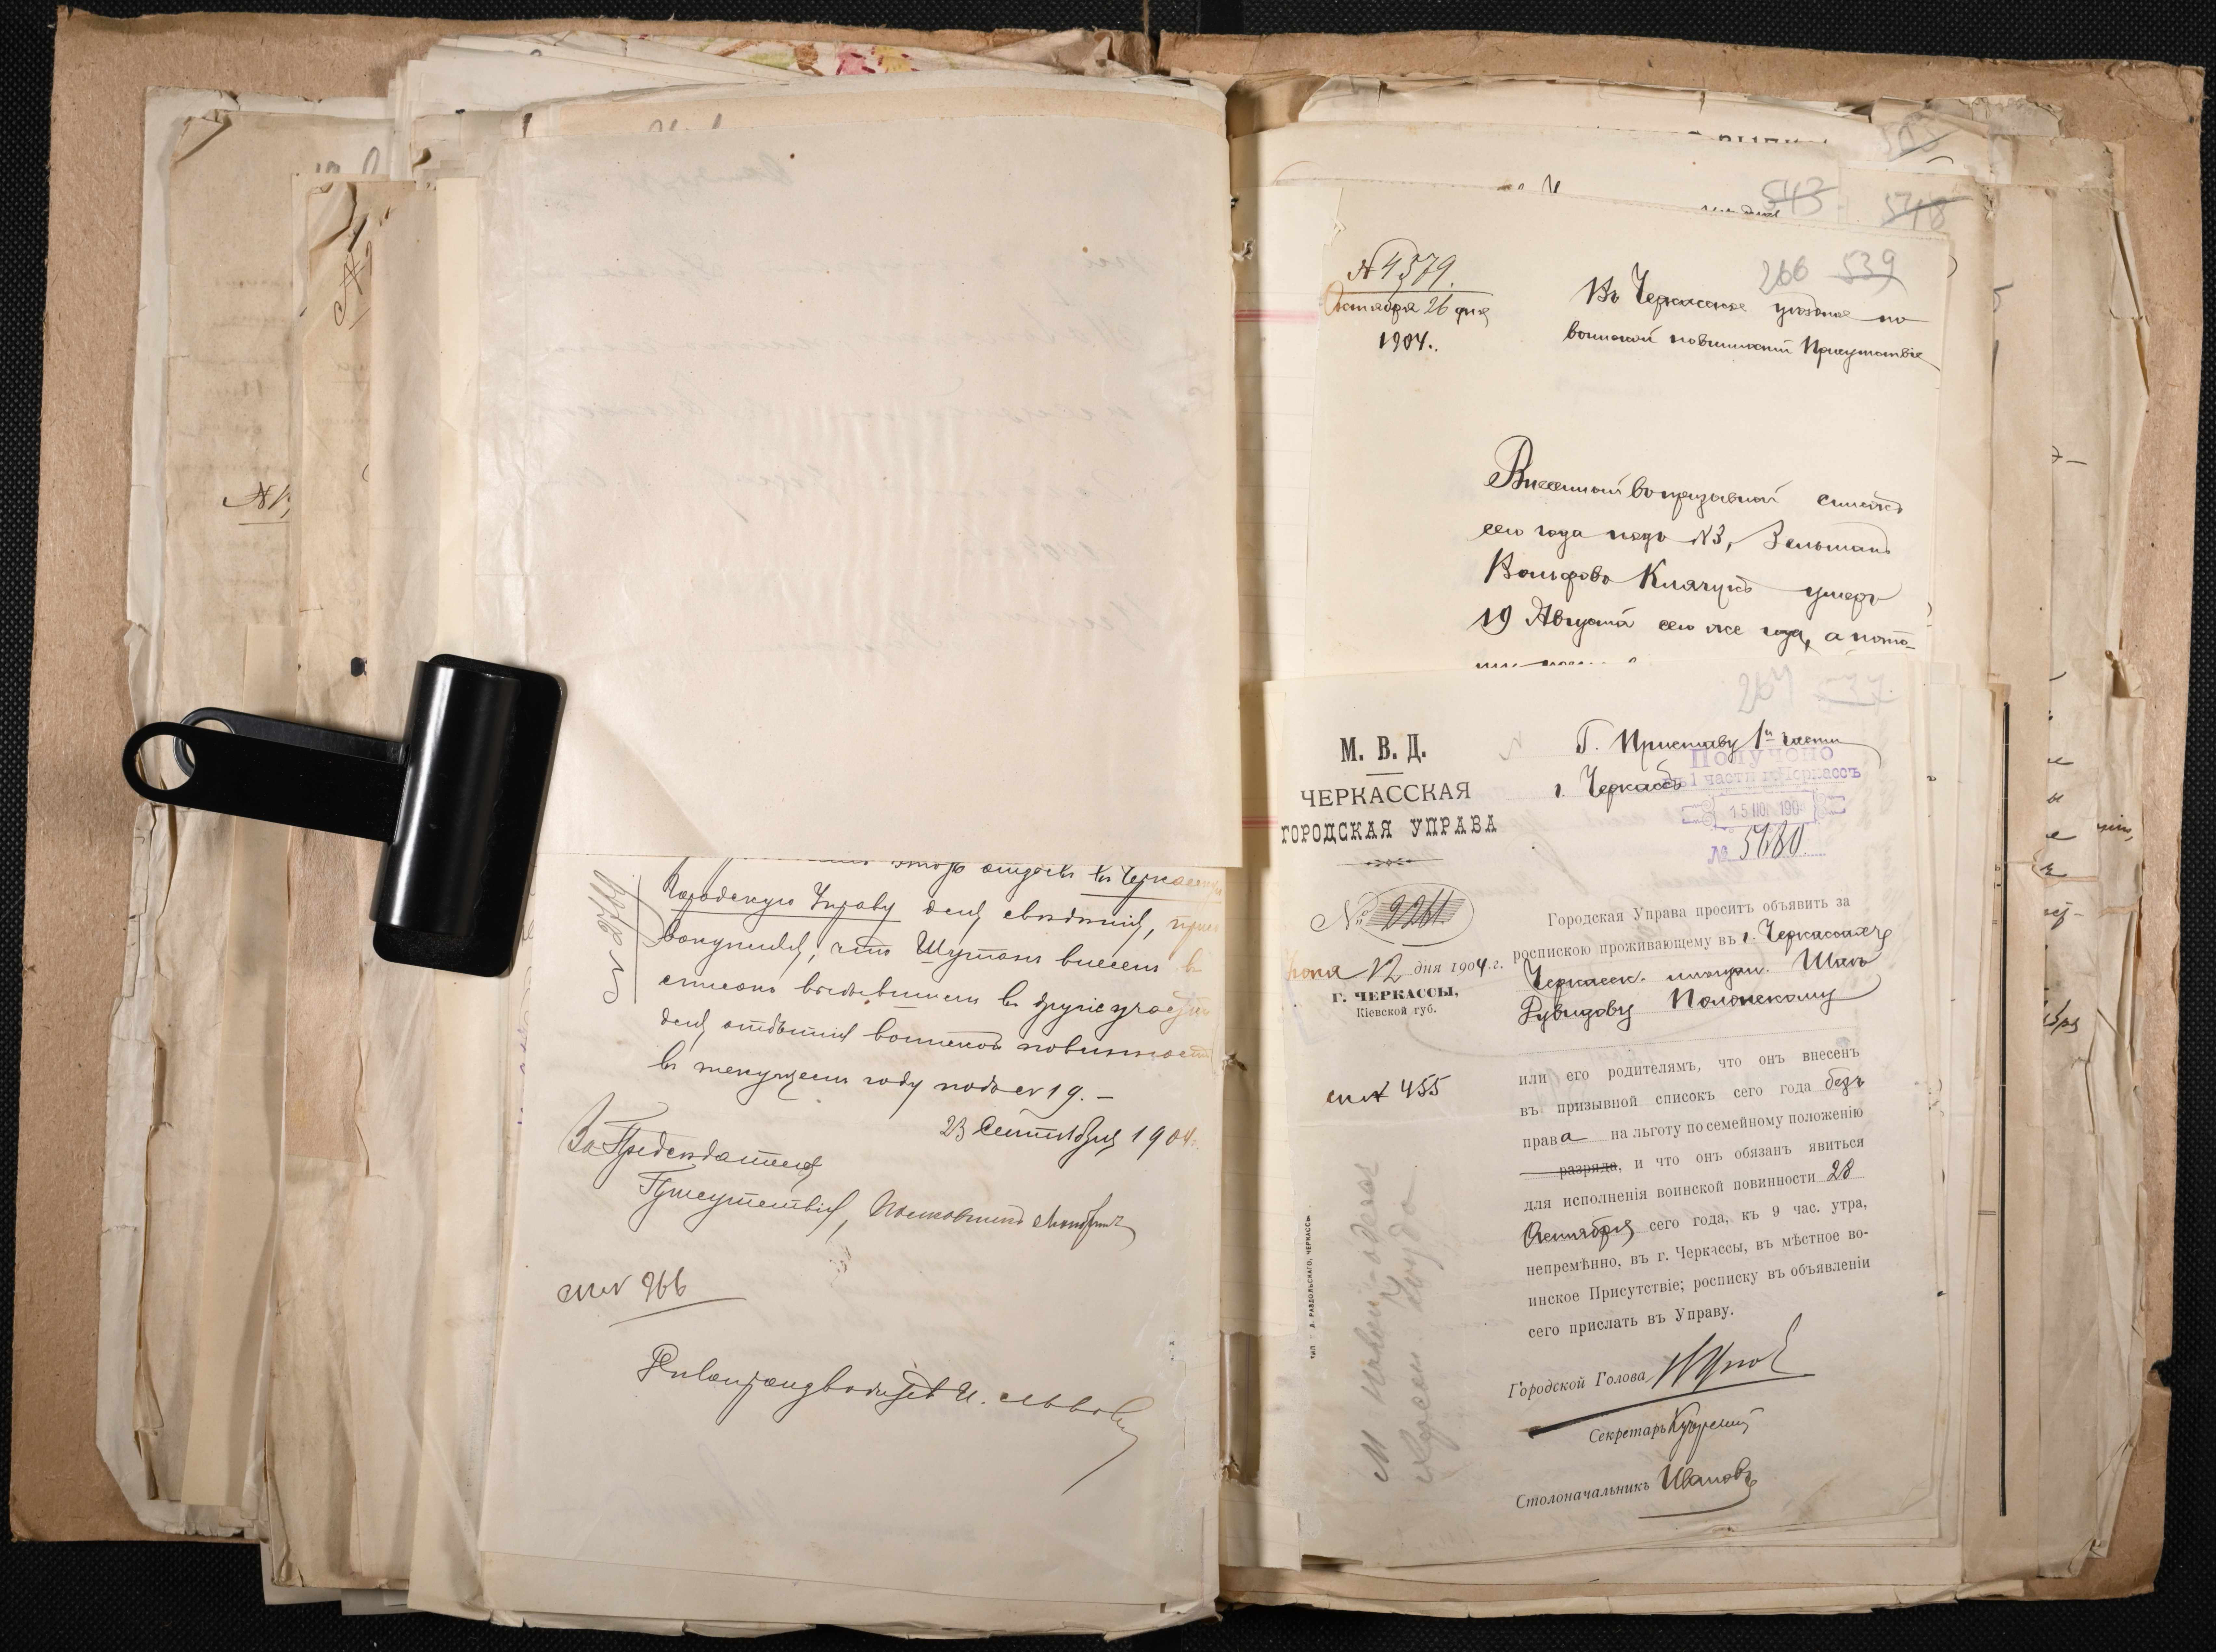 этого отдѣлъ въ Черкасскую
Городскую Управу для свѣдѣнія,
что Шутманъ внесенъ въ
списокъ въ другіе участки
для отбытія воинской повинности
въ текущемъ году подъ № 19. –
23 Сентября 1904
№ 2769
За Предсѣдателя
Присутствія, Полковникъ
см № 266
Дѣлопроизводитель И. Львовъ
543
548
266 539
№ 4579.
Октября 26 дня
1904.
Въ Черкасское уѣздное по
воинской повинности Присутствіе
Внесенный въ призывной списокъ
сего года подъ № 3, Зельманъ
Вольфовъ Клячукъ умеръ
19 Августа сего же года, а пото-
267 537
М. В. Д.
ЧЕРКАССКАЯ
ГОРОДСКАЯ УПРАВА
№ 2261
Іюня 12 дня 1904 г.
Г. ЧЕРКАССЫ,
Кіевской губ.
сп № 455
Г. Приставу 1й части
г. Черкассъ
Получено
въ 1 части г. Черкассъ
15 ІЮН 190
№ 5180
Городская Управа проситъ объявить за
роспискою проживающему въ г. Черкассахъ
Черкасск. мѣщан.
Рувидову Полонскому
или его родителямъ, что онъ внесенъ
въ призывной списокъ сего года безъ
права на льготу по семейному положенію
разряда, и что онъ обязанъ явиться
для исполненія воинской повинности 28
Октября сего года, къ 9 час. утра,
непремѣнно, въ г. Черкассы, въ мѣстное во-
инское Присутствіе; росписку въ объявленіи
сего прислать въ Управу.
Городской Голова
Секретарь
Столоначальникъ Ивановъ